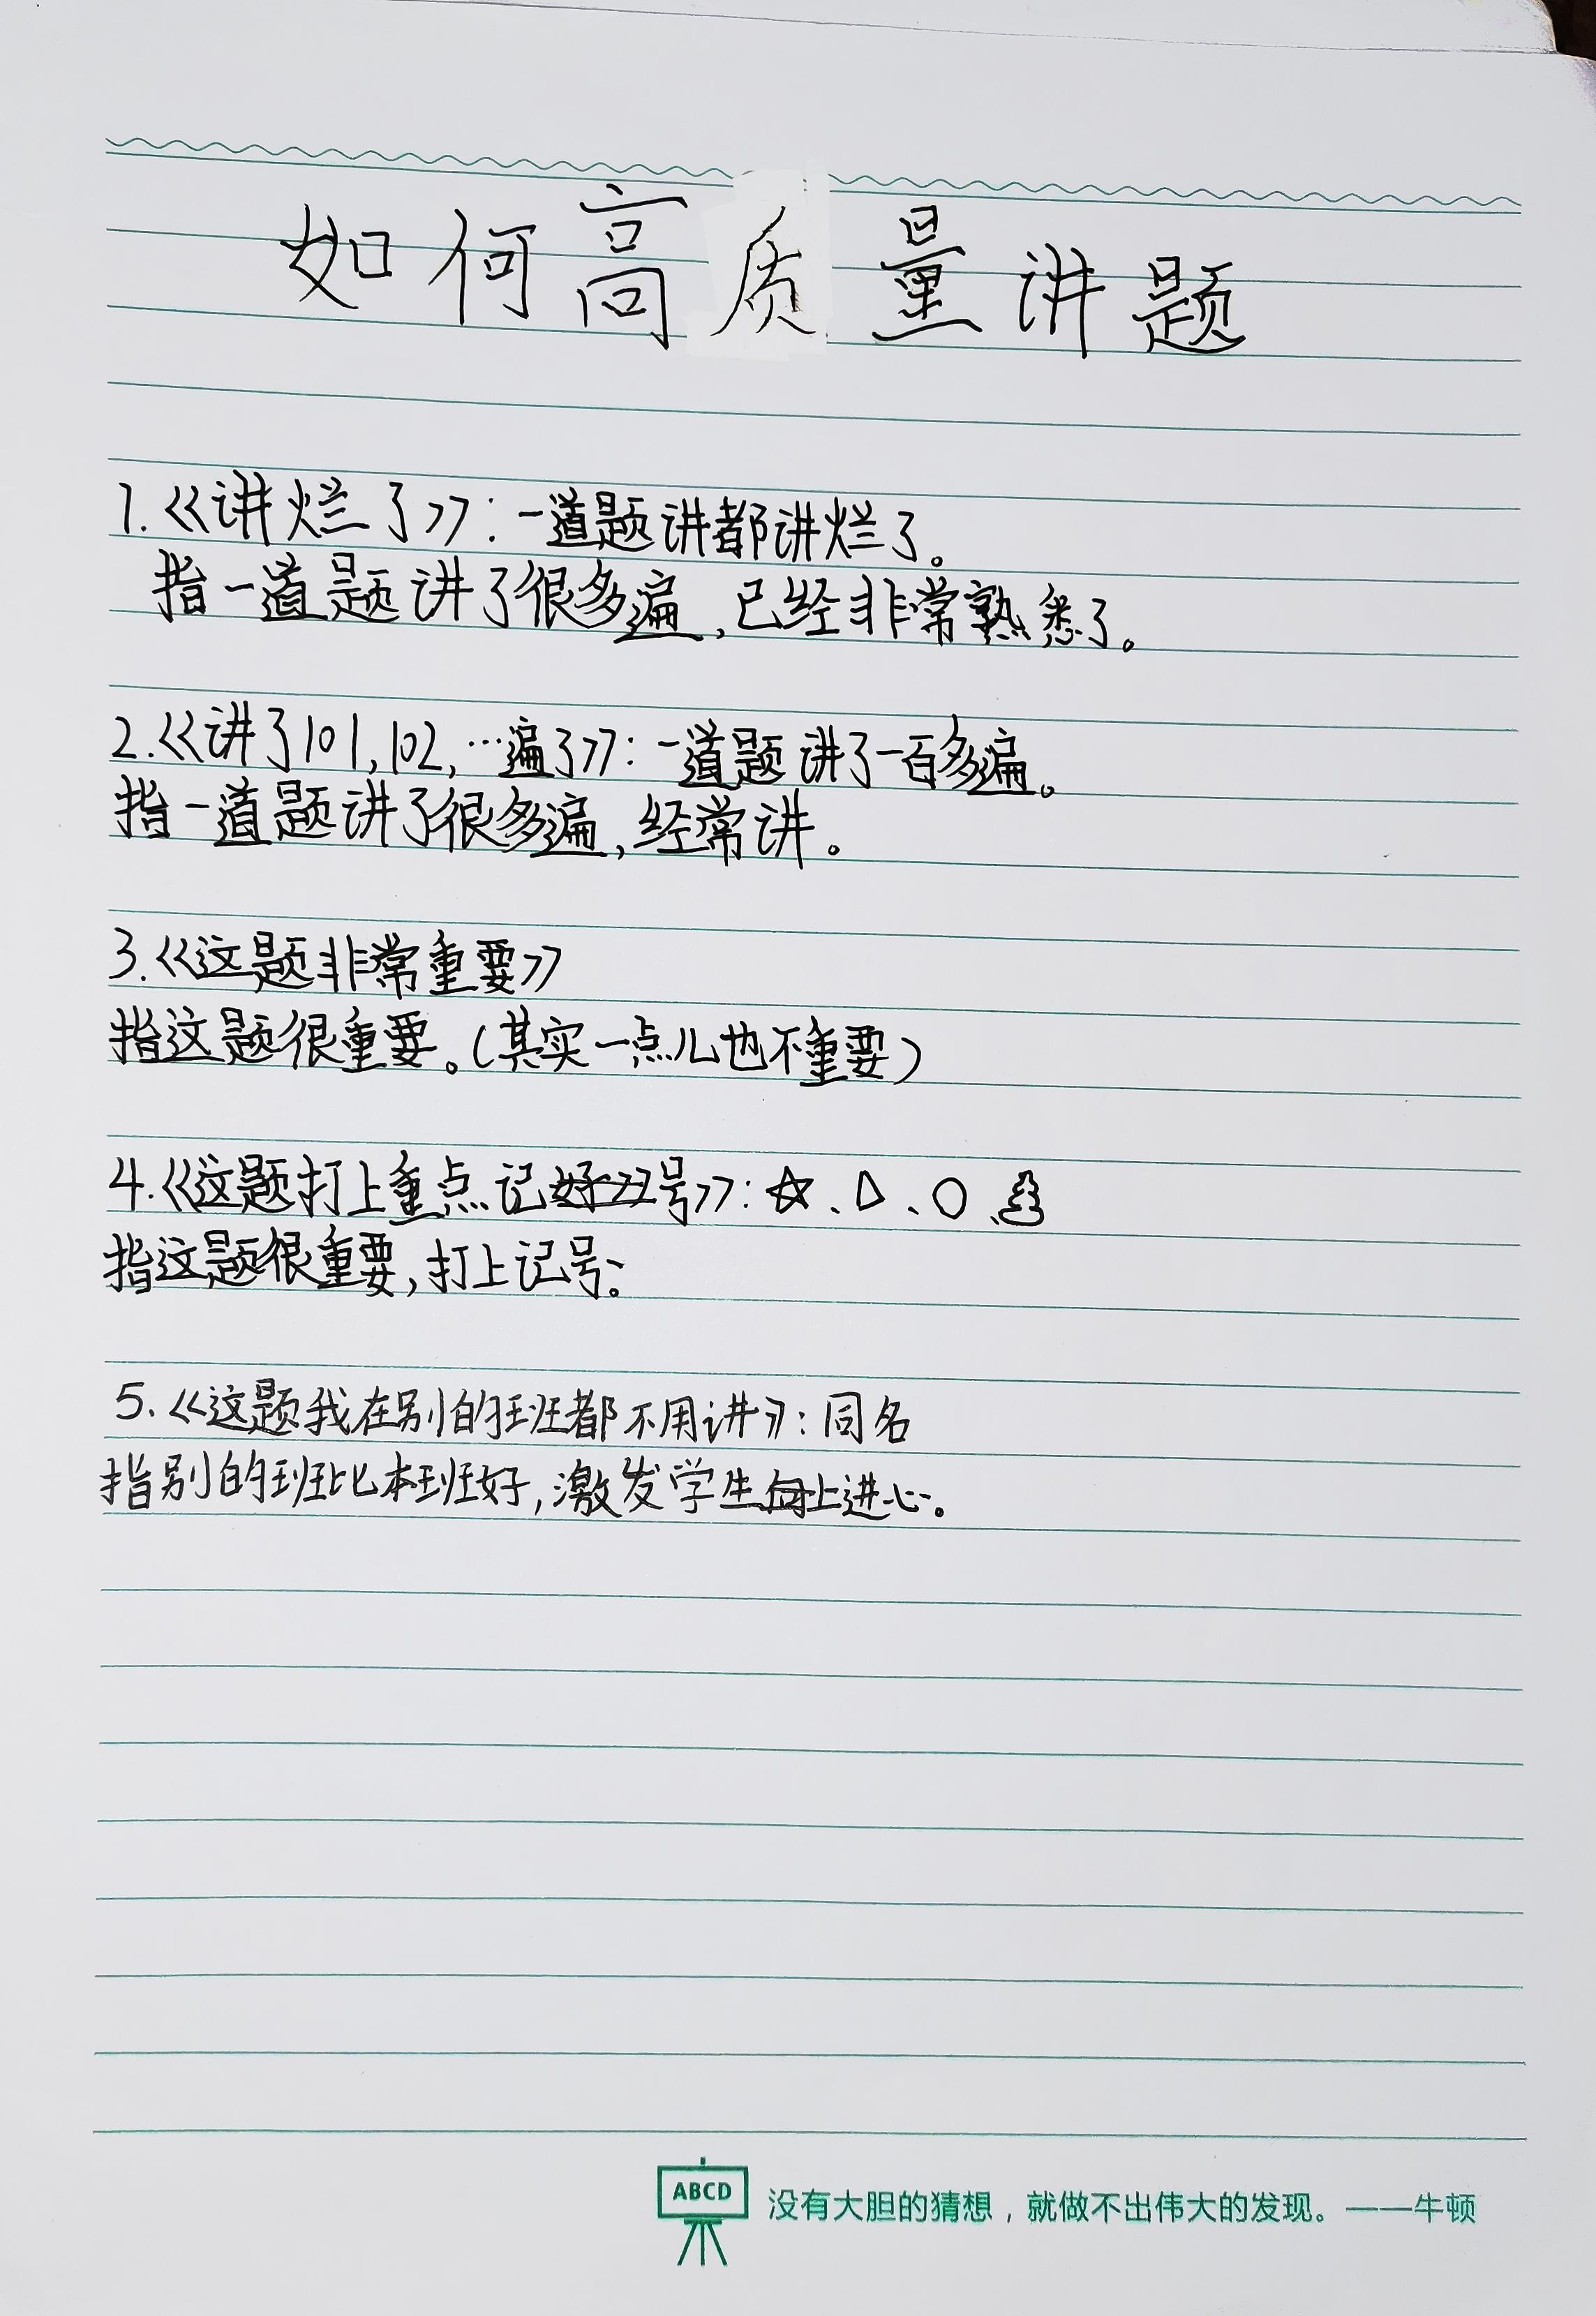 如何高质量讲题
1.《讲烂了》：一道题讲都讲烂了。
指一道题讲了很多遍，已经非常熟悉了。
2.《讲了101,102,…遍了》：一道题讲了一百多遍。
指一道题讲了很多遍，经常讲。
3.《这题非常重要》
指这题很重要。（其实一点儿也不重要）
4.《这题打上重点记号》：☆、△、○、
指这题很重要，打上记号。
5.《这题我在别的班都不用讲》：同名
指别的班比本班好，激发学生上进心。
ABCD
没有大胆的猜想，就做不出伟大的发现。——牛顿